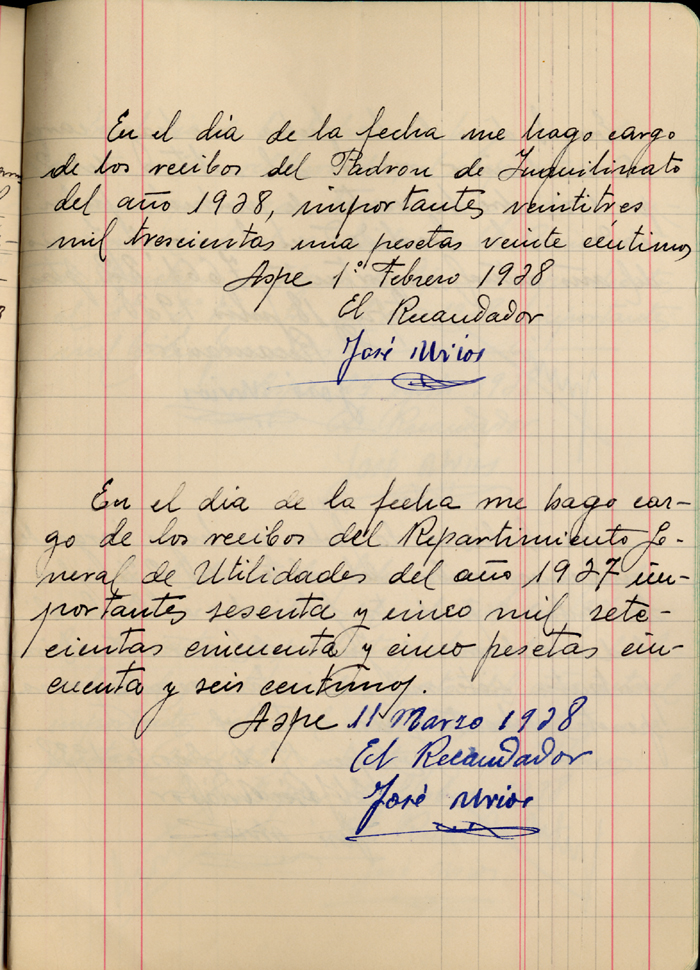 En el dia de la fecha me hago cargo
de los recibos del Padron de Inquilinato
del año 1928, importantes veintitres
mil trescientas una pesetas veinte centimos
Aspe 1º Febrero 1928
El Recaudador
José Urios
En el dia de la fecha me hago car-
go de los recibos del Repartimiento Ge-
neral de Utilidades del año 1927 im-
portantes sesenta y cinco mil sete-
cientas cincuenta y cinco pesetas cin-
cuenta y seis centimos.
Aspe 11 Marzo 1928
El Recaudador
José Urios